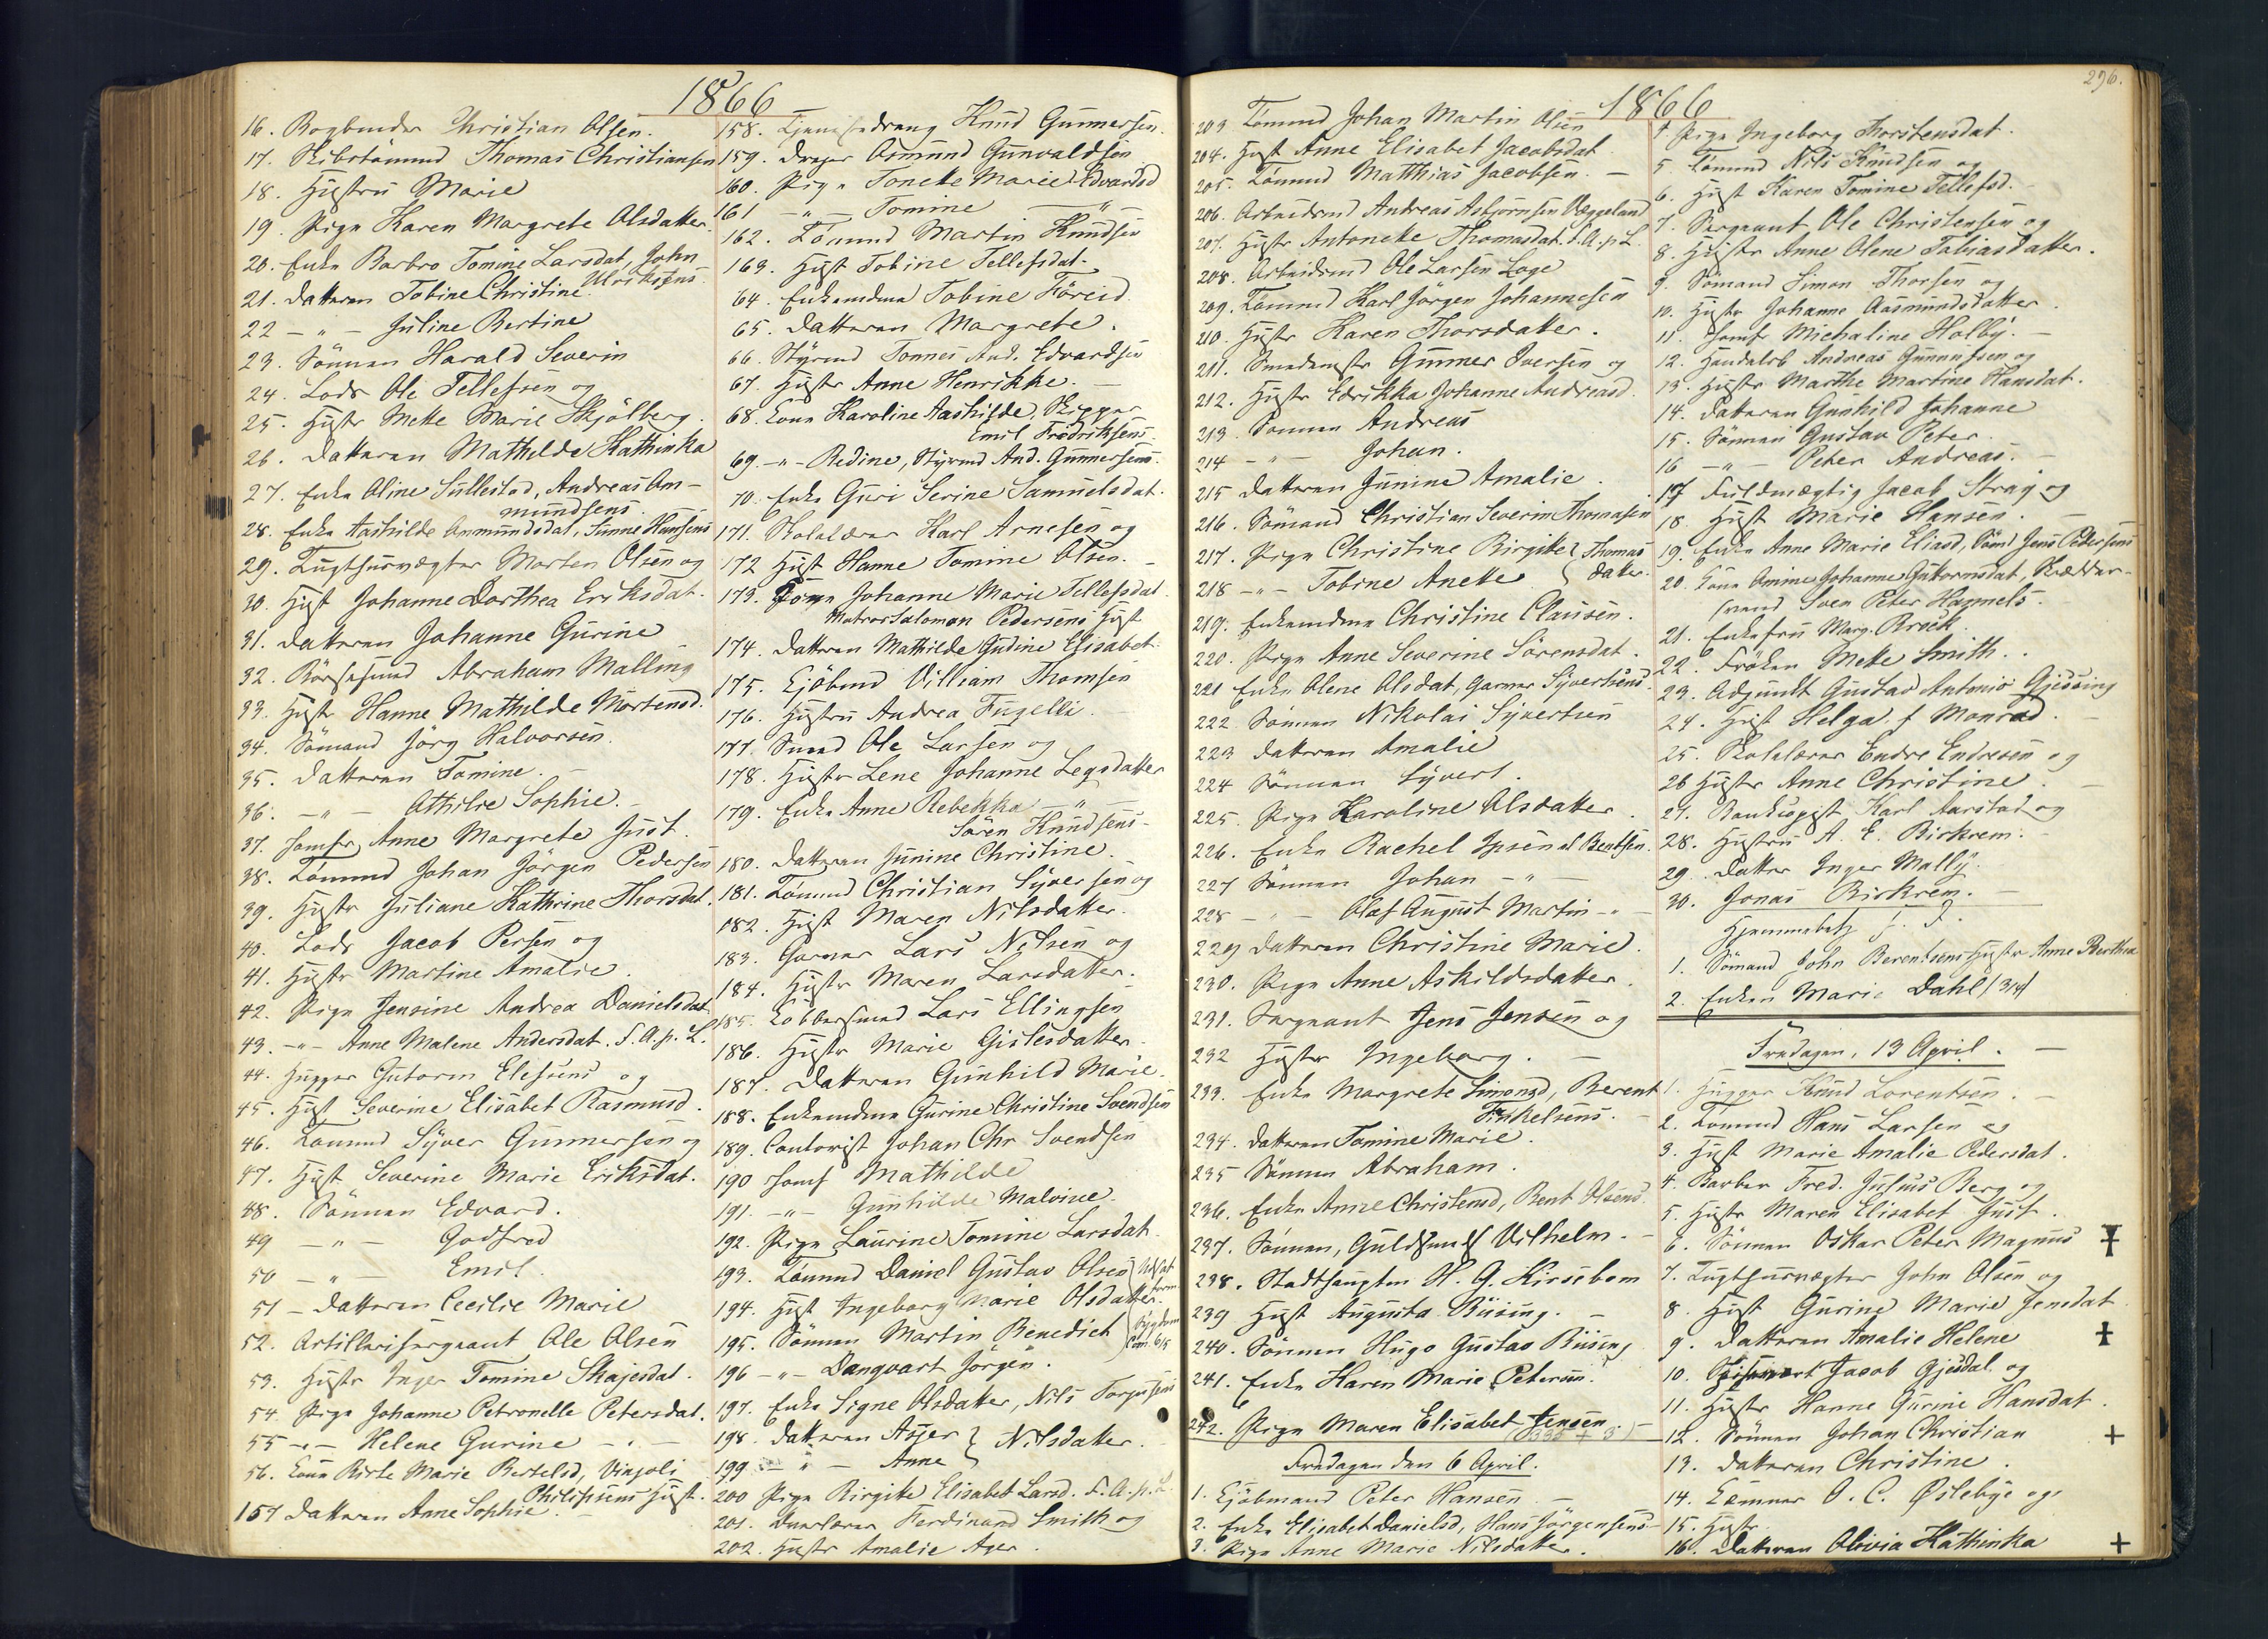 1866
16. Bogbinder Christian Olsen.
17. Skibstømmd Thomas Christiansen
18. Hustru Marie
19. Pige Karen Margrete Olsdatter.
20. Enke Barbro Tomine Larsdat, John
Ulriksens
21. Datteren Tobine Christine
22 - " - Juline Bertine
23. Sønnen Harald Severin
24. Lods Ole Tellefsen og
25. Hustr Mette Marie Skjølberg.
26. Datteren Mathilde Kathinka
27. Enke Oline Sullestad, Andreas Am-
mundsens
28. Enke Aashilde Anmundsdat, Sunne Hansens
29. Tugthusvægter Morten Olsen og
30. Hust Johanne Dorthea Eriksdat.
31. Datteren Johanne Gurine
32. Børsesmed Abraham Malling
33. Hustr Hanne Mathilde Mortensd.
34. Sømand Jörg Halvorsen.
35. Datteren Tomine.
36. - " - Athilie Sophie.
37. Jomfr Anne Margrete Just.
38. Tømmd Johan Jörgen Pedersen
39. Hustr Juliane Kathrine Thorsdat.
40. Lods Jacob Persen og
41. Hustr Martine Amalie.
42. Pige Jensine Andrea Danielsdat
43. - " - Anne Malene Andersdat. F. A. p. L.
44. Hugger Gutorm Elefsens og
45. Hust Severine Elisabet Rasmusd.
46. Tømmd Syver Gunnersen og
47. Hust Severine Marie Eriksdat.
48. Sønnen Edvard.
49 - " - Godfred
50 - " - Emil.
51 - Datteren Cecilie Marie
52. Artillerisergeant Ole Olsen
53. Hustr Inger Tomine Skajesdat.
54. Pige Johanne Petronelle Petersdat.
55 - " - Helene Gurine - " -
56. Kone Birte Marie Bertelsd, Vinjoli
Philipsens Hust.
157 Datteren Anne Sophie.
158. Tjenestedreng Knud Gunnersen.
159. Drager Osmund Gunvaldsen
160. Pige Toneke Marie Edvardsd
161 - " - Tomine - " -
162. Tømmd Martin Knudsen
163. Hust Tobine Tellefsdat.
64. Enkemdme Tobine Föreid.
65. Datteren Margrete.
66. Styrmd Tonnes And. Edvardsen
67. Hustr Anne Henrikke.
68. Kone Karoline Aashilde, Skipper
Emil Fredriksens.
69. - " - Redine, Styrmd And. Gunnersens.
70. Enke Guri Serine Samuelsdat.
171. Skolelærer Karl Arnesen og
172 Hust Hanne Tomine Olsen.
173. Kone Johanne Marie Tellefsdat
Matros Salomon Pedersens Hust
174. Datteren Mathilde Gudine Elisabet.
175. Kjöbmd Villiam Thomsen
176. Hustru Andrea Fugelli.
177. Smed Ole Larsen og
178. Hustr Lene Johanne Legsdatter
179. Enke Anne Rebekka - " -
Sören Knudsens -
180. Datteren Junine Christine.
181. Tømmd Christian Syversen og
182. Hust Maren Nilsdatter.
183. Garver Lars Nilsen og
184. Hustr Maren Larsdatter.
185. Kobbersmed Lars Ellingsen
186. Hustr Marie Gislesdatter.
187. Datteren Gunhild Marie.
188. Enkemdme Gurine Christine Svendsen
189. Contorist Johan Chr Svendsen
190 Jomf Mathilde
191. - " - Gunhilde Malvine.
192. Pige Laurine Tomine Larsdat
193. Tømmd Daniel Gustav Olsen
194. Hust Ingeborg Marie Olsdatter.
195. Sønnen Martin Benedict
196 - " - Danqvart Jörgen.
197. Enke Signe Olsdatter, Nils Torgusens
198. Datteren Asjer } Nilsdatter.
199 - " - Anne
200 Pige Birgitte Elisabet Larsd. F. A. p. L
201. Døvelærer Ferdinand Smith og
202. Hustr Amalie Ager.
296.
1866
203 Tömmd Johan Martin Olsen
204. Hust Anne Elisabet Jacobsdat
205. Tömmd Matthias Jacobsen. -
206. Arbeidsmd Andreas Asbjørnsen Væggeland
207. Hustr Antonette Thomasdat. F. A. p. L.
208. Arbeidsmd Ole Larsen Loge
209. Tömmd Karl Jörgen Johannesen
210. Hustr Karen Thorsdatter.
211. Smedemstr Gunner Iversen og
212. Hustr Edrikka Johanne Andreasd.
213. Sønnen Andreas
214 - " - Johan.
215 Datteren Junine Amalie.
216. Sømand Christian Severin Thomasen
217. Pige Christine Birgitte } Thomas
datter.
218 - " - Tobine Anette
219. Enkemdme Christine Clausen.
220. Pige Anne Severine Sörensdat.
221 Enke Olene Olsdat, Garver Syvertsens
222 Sønnen Nikolai Syvertsen
223 Datteren Amalie
224 Sønnen Syvert.
225. Pige Karoline Olsdatter
226. Enke Rachel Ipsen al Bentsen.
227 Sønnen Johan - " -
228 - " - Olaf August Martin - " -
229 Datteren Christine Marie.
230. Pige Anne Askildsdatter.
231. Sergeant Jens Jensen og
232 Hustr Ingeborg. -
233. Enke Margrete Simonsd, Berent
Finkelsens. -
234. Datteren Tomine Marie.
235 Sønnen Abraham.
236. Enke Anne Christensd, Bent Olsens.
237. Sønnen, Guldsmed Vilhelm. -
238. Stadthauptm H. G. Kirsebom
239 Hust Augusta Büsing. -
240. Sønnen Hugo Gustav Büsing
241. Enke Karen Marie Petersen.
242. Pige Maren Elisabet Jensen.
Fredagen den 6 April.
1. Kjöbmand Peter Hansen -
2. Enke Elisabet Danielsd, Hans Jörgensens -
3. Pige Anne Marie Nilsdatter.
4. Pige Ingeborg Thorstensdat.
5 Tømmd Nils Knudsen og
6. Hust Karen Tomine Tellefsd.
7. Sergeant Ole Christensen og
8. Hustr Anne Olene Tobiasdatter.
9. Sømand Simon Thorsen og
10. Hustr Johanne Aasmundsdatter.
11. Jomfr Michaline Holby. -
12. Handelsb Andreas Gunnufsen og
13. Hustr Marthe Martine Hansdat.
14. Datteren Gunhild Johanne
15. Sønnen Gustav Peter.
16 - " - Peter Andreas. -
17 Fuldmægtig Jacob Stray og
18. Hust Marie Hansen. -
19. Enke Anne Marie Eliasd, Sømd Jens Pedersens
20. Kone Amine Johanne Gutormsdat, Skrædder-
svend Sven Peter Hammels.
21. Enkefru Marg. Brück.
22. Frøken Mette Smith. .
23. Adjunkt Gustav Antonio Gjessing
24. Hust Helga f Monrad. -
25. Skolelærer Endre Endresen og
26 Hustr Anne Christine. -
27. Bankkopist Karl Aarstad og
28. Hustru A. E. Birkrem. -
29. Datter Inger Mally.
30. Jonas Birkrem. -
Hjemmebetj.
1. Sømand John Berentsens Hustr Anne Berthea
2. Enken Marie Dahl (3/4)
Fredagen, 13 April. -
1. Hugger Knud Lorentsen. -
2. Tømmd Hans Larsen og
3. Hust Marie Amalie Pedersdat.
4. Barber Fred. Julius Berg og
5. Hustr Maren Elisabet Just.
6. Sønnen Oskar Peter Magnus
7. Tugthusvægter John Olsen og
8. Hust Gurine Marie Jensdat
9. Datteren Amalie Helene
10. Jacob Gjesdal og
11. Hustr Hanne Gurine Hansdat.
12. Sønnen Johan Christian +
13. Datteren Christine.
14. Kæmner O. C. Øslebye og
15. Hustr
16. Datteren Olivia Kathinka +